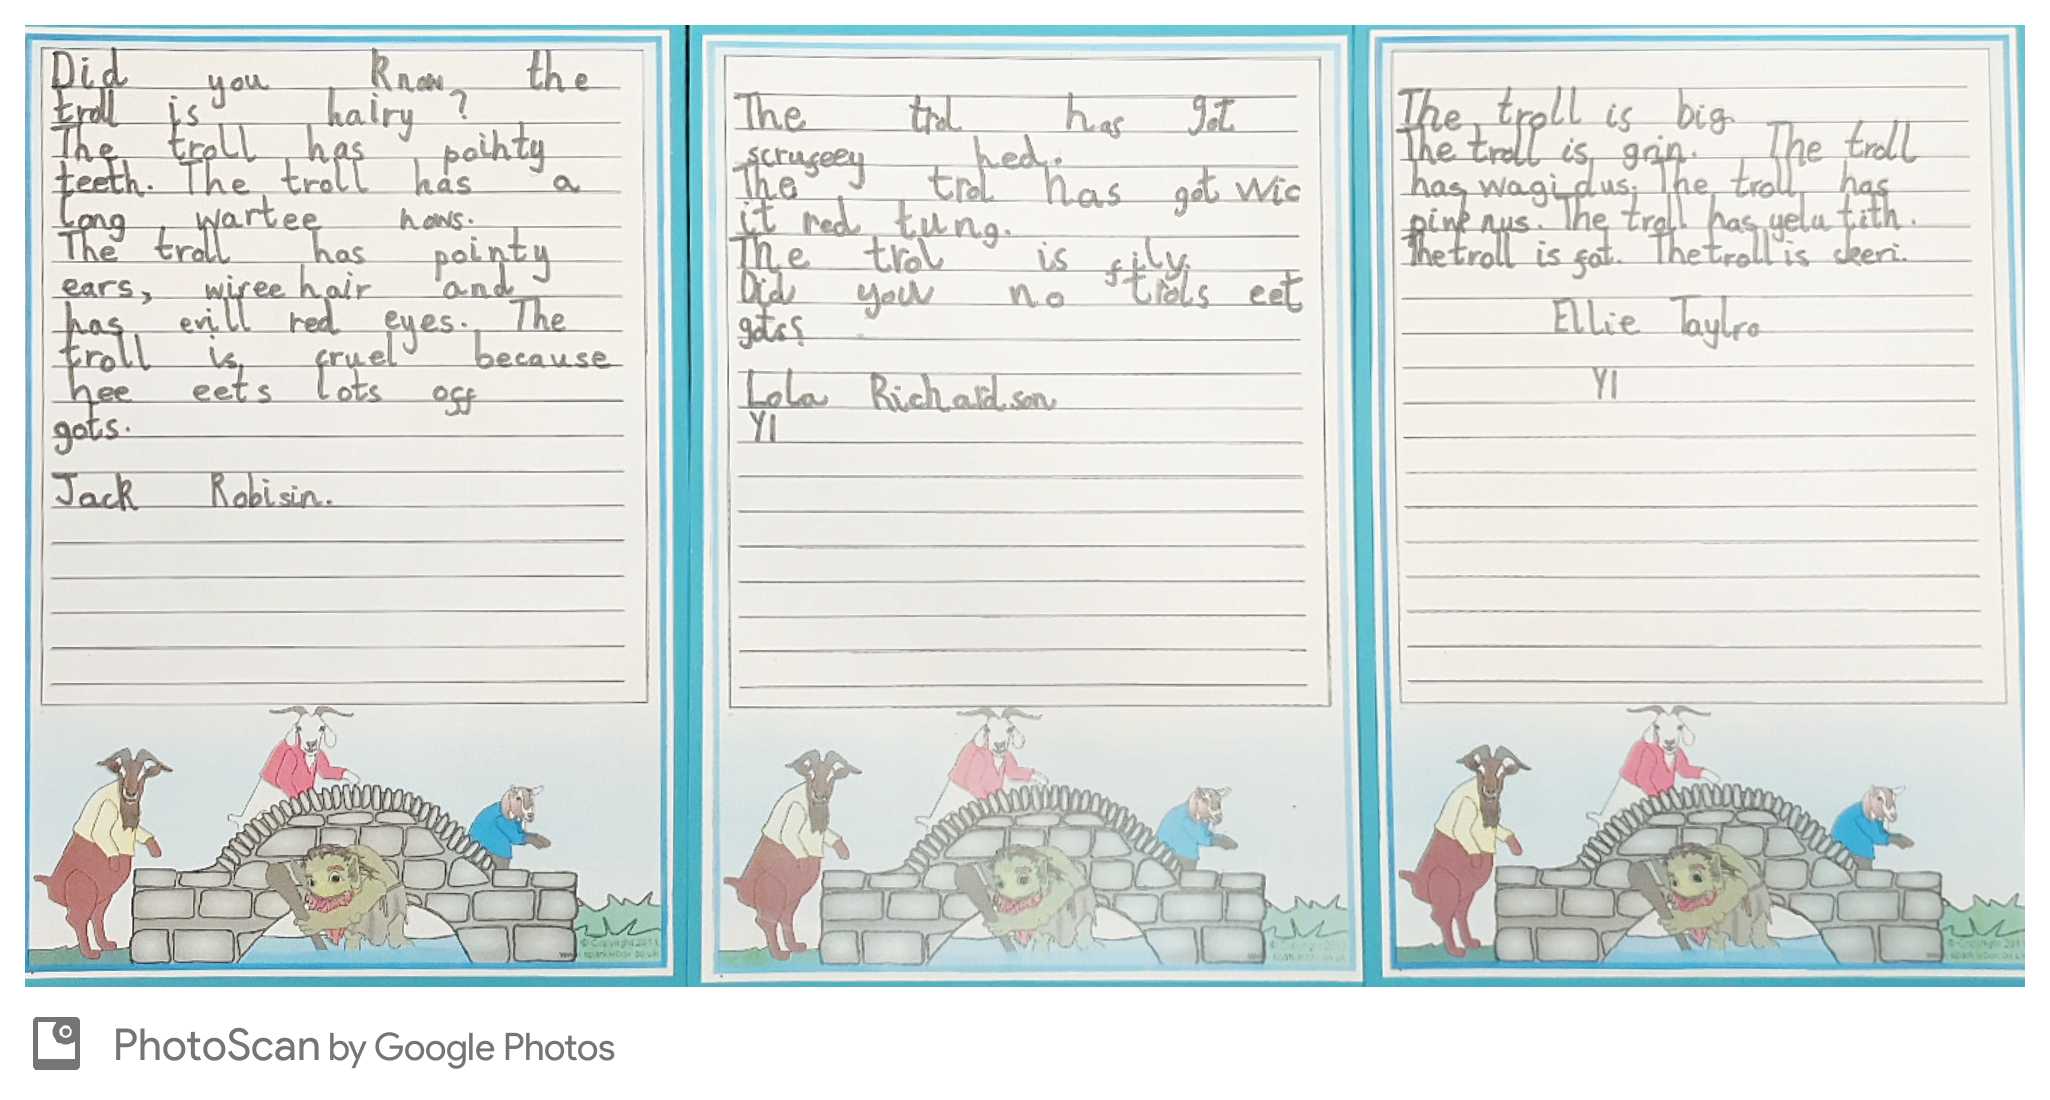 Did you know the
troll is hairy?
The troll has poihty
teeth. The troll has a
long wartee nows.
The troll has pointy
ears, wiree hair and
has evill red eyes. The
troll is cruel because
hee eets lots off
gots.
Jack Robisin.
The trol has got
scruffy hed.
The trol has got wic
it red tung.
The trol is sily.
Did you no trols eet
gots?
Lola Richardson
Y1
The troll is big.
The troll is grin. The troll
has wagi dus. The troll has
pink nus. The troll has yelu tith.
The troll is fat. The troll is
Ellie Taylro
Y1
© Copyright 2011
PhotoScan by Google Photos